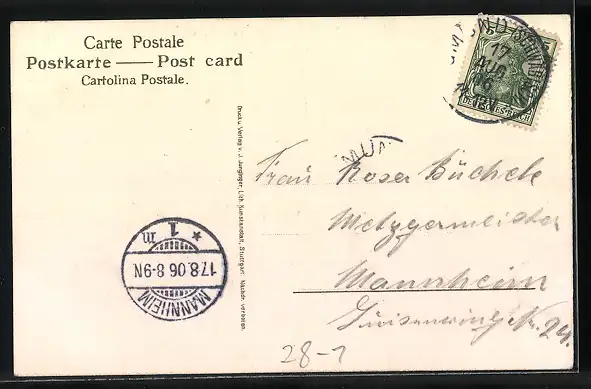 Carte Postale
Postkarte — Post card
Cartolina Postale.
Druck u. Verlag v. J. Junginger, Lith. Kunstanstalt, Stuttgart. Nachdr. verboten.
GMÜND
17
AUG
06
DEUTSCHES REICH
Frau Rosa Büchele
Metzgermeister
Mannheim
Nr. 24.
MANNHEIM
17.8.06.8-9N
* 1 m
28-1